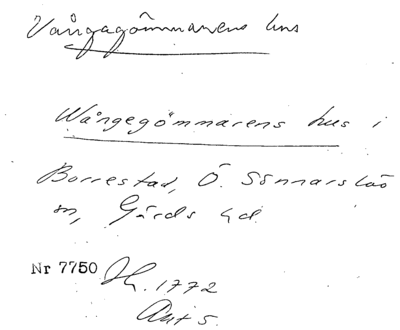 Vångagömmarens hus
Wångegömmarens hus i
Borrestad, Ö. Sönnarslöv
sn, Gärds hd.
Nr 7750 Jh. 1772
Avt 5.